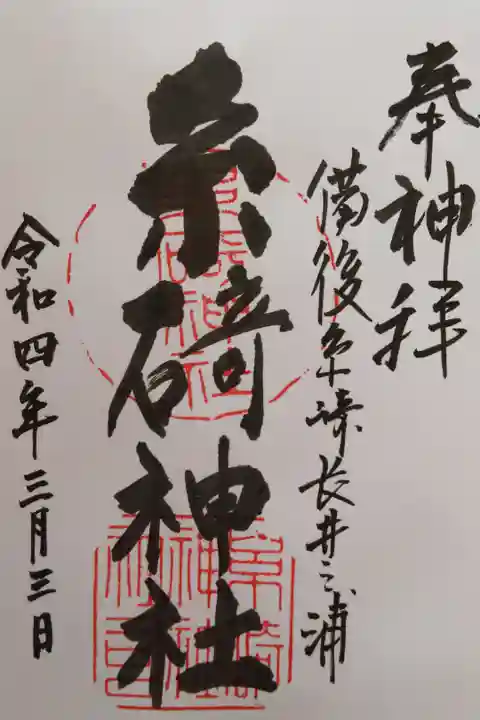 奉神拝
備後糸湊長井之浦
糸碕神社
令和四年三月三日